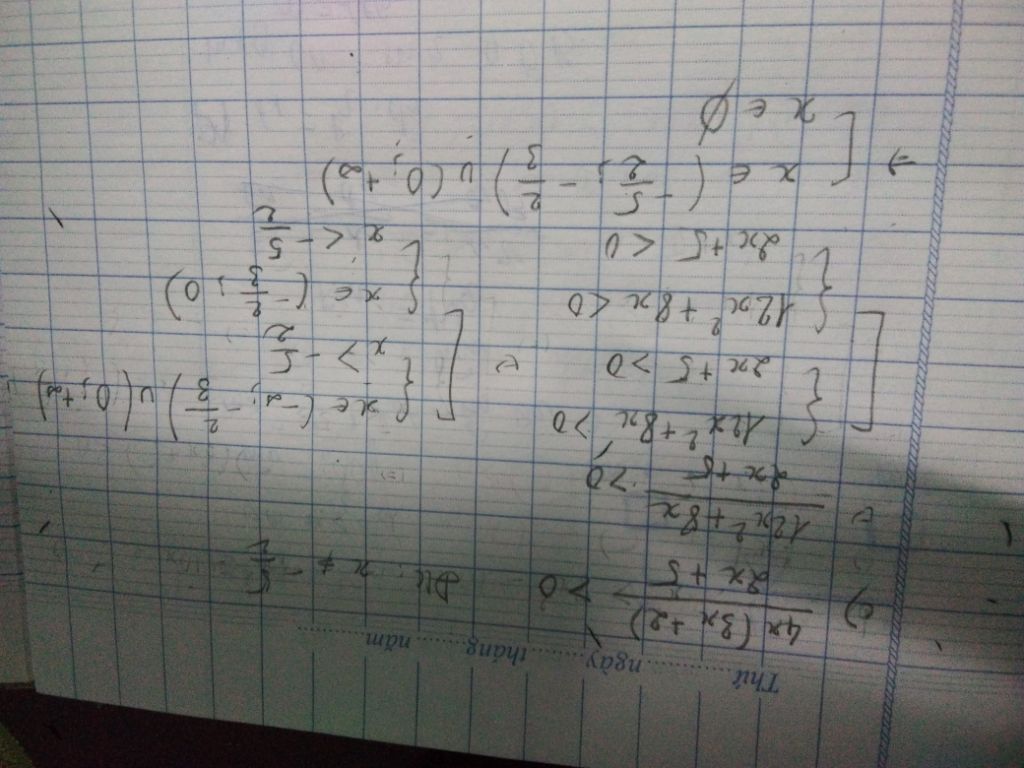 Thứ ........ ngày ........ tháng ........ năm ........
c) \frac{4x(3x+2)}{2x+5} > 0 ĐK: x ≠ -\frac{5}{2}
⇔ \frac{12x²+8x}{2x+5} > 0
[ { 12x²+8x > 0 [ { x ∈ (-∞; -\frac{2}{3}) ∪ (0; +∞)
2x+5 > 0 ⇔ x > -\frac{5}{2}
{ 12x²+8x < 0 { x ∈ (-\frac{2}{3}; 0)
2x+5 < 0 x < -\frac{5}{2}
⇒ [ x ∈ (-\frac{5}{2}; -\frac{2}{3}) ∪ (0; +∞)
x ∈ ∅